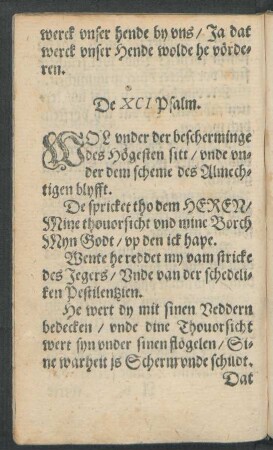 werck vnser hende by vns / Ja dat
werck vnser Hende wolde he vörde-
ren.
De XCI Psalm.
WOL vnder der bescherminge
des Högesten sitt / vnde vn-
der dem scheme des Almech-
tigen blyfft.
De spricket tho dem HEREN /
Mine thouorsicht vnd mine Borch
Myn Godt / vp den ick hape.
Wente he reddet my vam stricke
des Jegers / Vnde van der schedeli-
ken Pestilentzien.
He wert dy mit sinen Veddern
bedecken / vnde dine Thouorsicht
wert syn vnder sinen flögelen / Si-
ne warheit js Scherm vnde schildt.
Dat